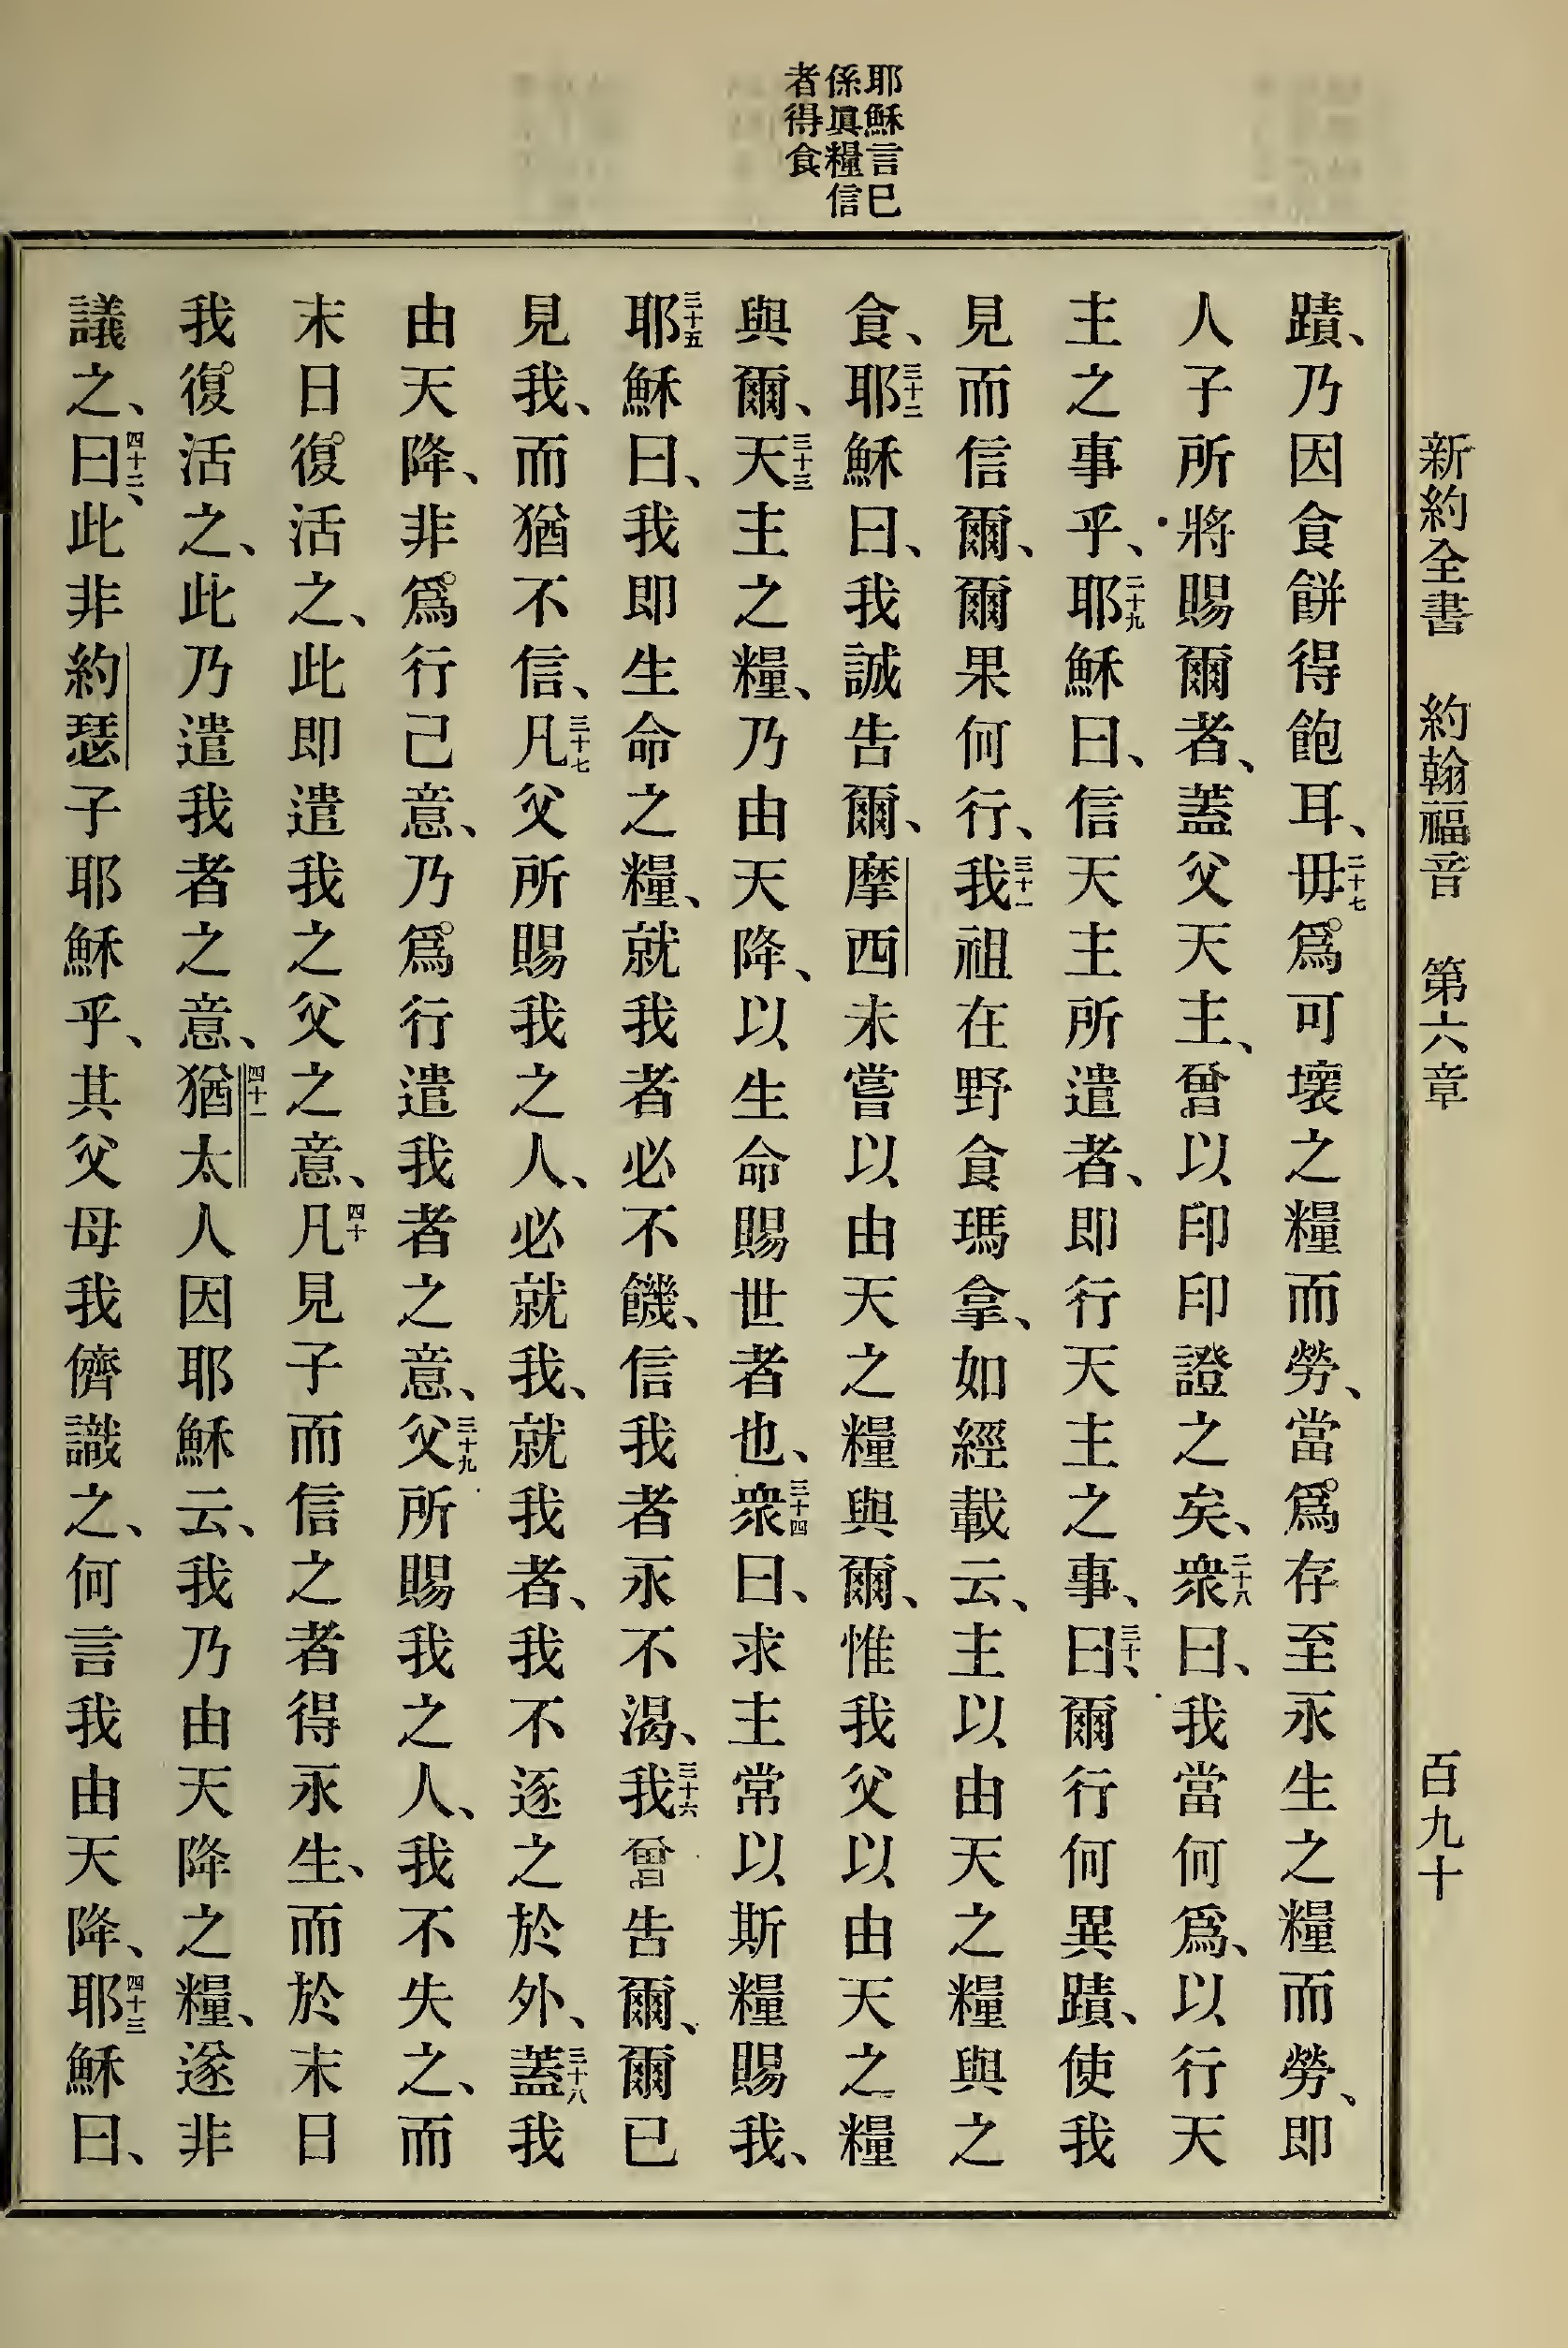 新約全書 約翰福音 第六章 百九十
耶穌言己
係眞糧信
者得食
蹟、乃因食餅得飽耳、二十七毋爲可壞之糧而勞、當爲存至永生之糧而勞、即
人子所將賜爾者、蓋父天主、曾以印印證之矣、二十八衆曰、我當何爲、以行天
主之事乎、二十九耶穌曰、信天主所遣者、即行天主之事、三十曰、爾行何異蹟、使我
見而信爾、爾果何行、三十一我祖在野食瑪拿、如經載云、主以由天之糧與之
食、三十二耶穌曰、我誠告爾、摩西未嘗以由天之糧與爾、惟我父以由天之糧
與爾、三十三天主之糧、乃由天降、以生命賜世者也、三十四衆曰、求主常以斯糧賜我、
三十五耶穌曰、我即生命之糧、就我者必不饑、信我者永不渴、三十六我曾告爾、爾已
見我、而猶不信、三十七凡父所賜我之人、必就我、就我者、我不逐之於外、三十八蓋我
由天降、非爲行己意、乃爲行遣我者之意、三十九父所賜我之人、我不失之、而
末日復活之、此即遣我之父之意、四十凡見子而信之者得永生、而於末日
我復活之、此乃遣我者之意、四十一猶太人因耶穌云、我乃由天降之糧、遂非
議之、四十二曰、此非約瑟子耶穌乎、其父母我儕識之、何言我由天降、四十三耶穌曰、